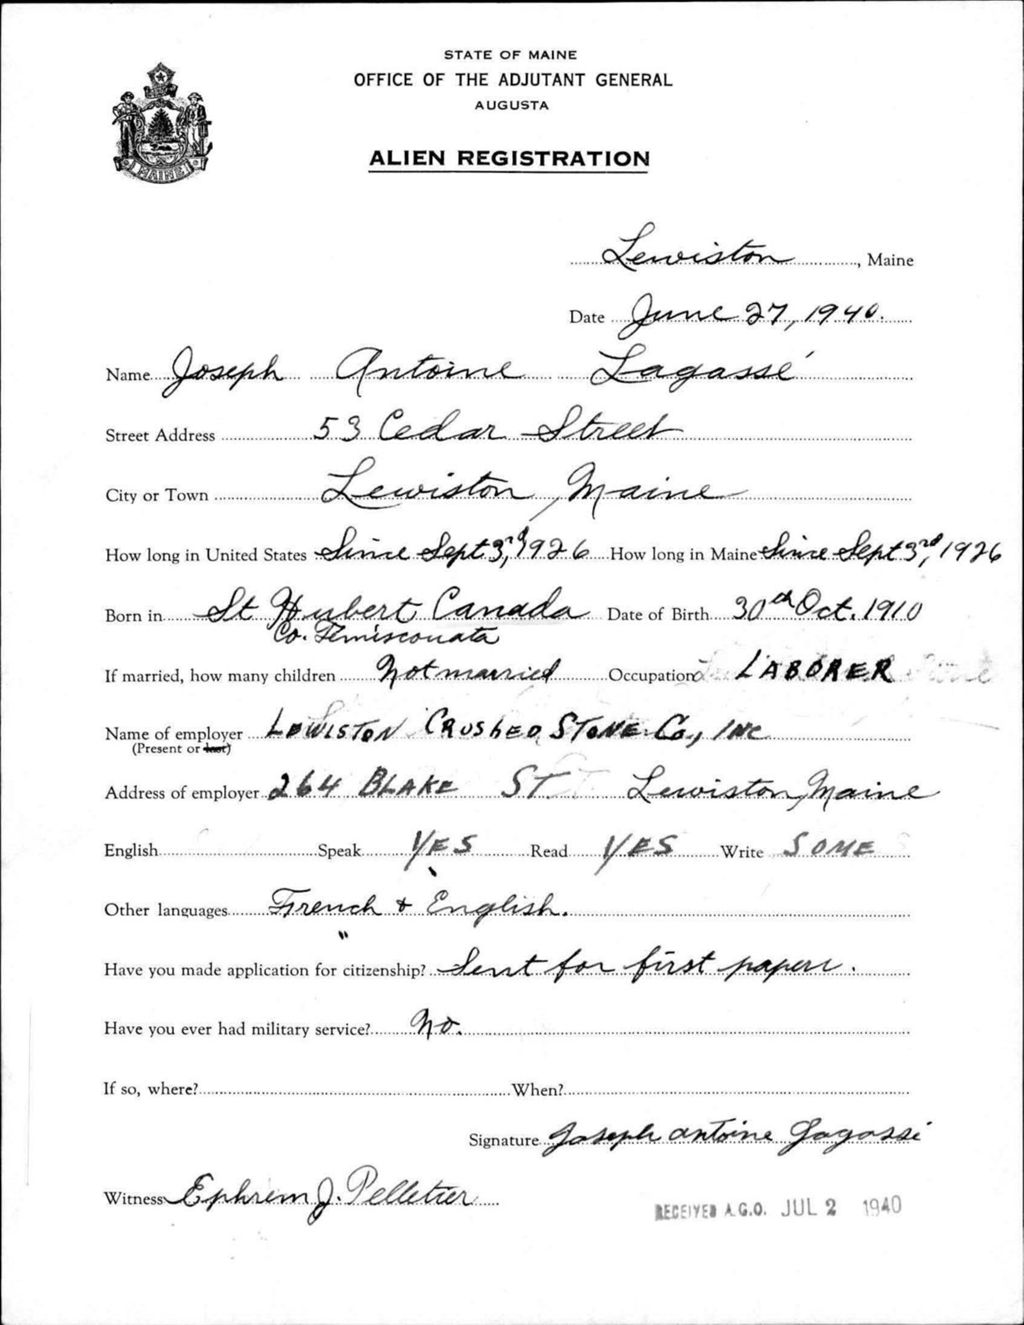 STATE OF MAINE
OFFICE OF THE ADJUTANT GENERAL
AUGUSTA
ALIEN REGISTRATION
MAINE
Lewiston, Maine
Date June 27, 1940.
Name Joseph Antoine Lagassé
Street Address 53 Cedar Street
City or Town Lewiston, Maine
How long in United States Since Sept 3rd, 1926 How long in Maine Since Sept 3rd, 1926
Born in St Hubert, Canada Date of Birth 30th Oct. 1910
Co. Temiscouata
If married, how many children Not married Occupation LABORER
Name of employer LEWISTON CRUSHED STONE Co., INC
(Present or last)
Address of employer 264 BLAKE ST Lewiston, Maine
English Speak YES Read YES Write SOME
Other languages French & English.
Have you made application for citizenship? Sent for first papers.
Have you ever had military service? No.
If so, where? When?
Signature Joseph antoine Lagassé
Witness Ephrem J. Pelletier
RECEIVED A.G.O. JUL 2 1940